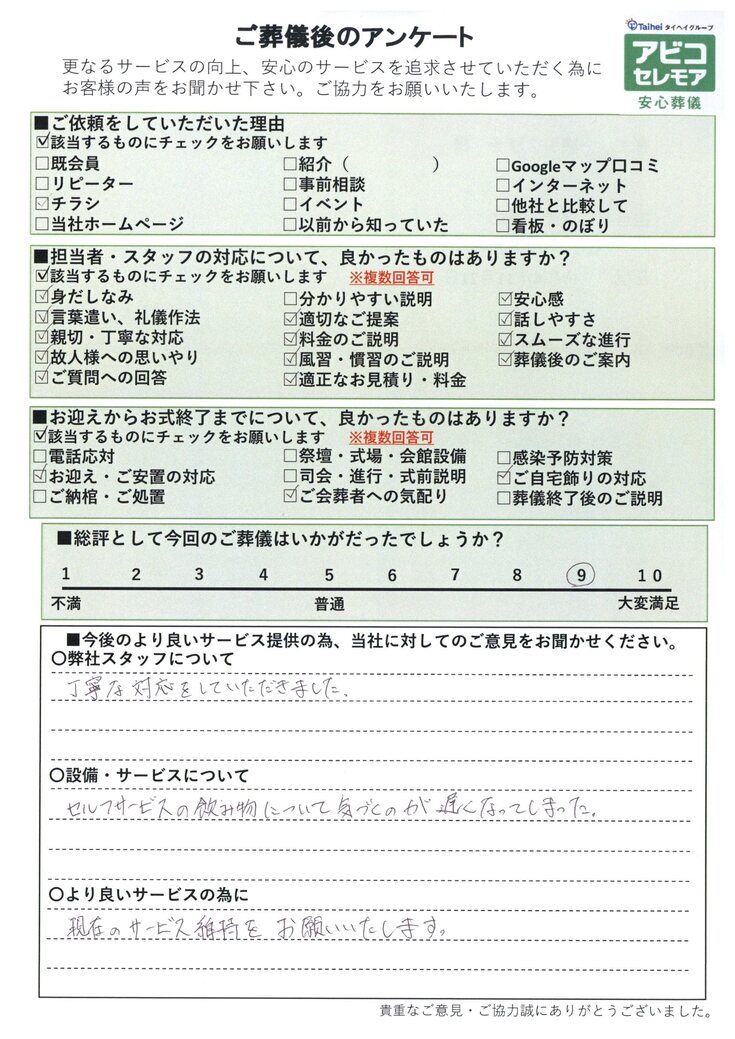 Taihei タイヘイグループ
ご葬儀後のアンケート
アビコ
セレモア
安心葬儀
更なるサービスの向上、安心のサービスを追求させていただく為に
お客様の声をお聞かせ下さい。ご協力をお願いいたします。
■ご依頼をしていただいた理由
☑該当するものにチェックをお願いします
□既会員 □紹介（　　　　　） □Googleマップ口コミ
□リピーター □事前相談 □インターネット
☑チラシ □イベント □他社と比較して
□当社ホームページ □以前から知っていた □看板・のぼり
■担当者・スタッフの対応について、良かったものはありますか？
☑該当するものにチェックをお願いします ※複数回答可
☑身だしなみ □分かりやすい説明 ☑安心感
☑言葉遣い、礼儀作法 ☑適切なご提案 ☑話しやすさ
☑親切・丁寧な対応 ☑料金のご説明 ☑スムーズな進行
☑故人様への思いやり ☑風習・慣習のご説明 ☑葬儀後のご案内
☑ご質問への回答 ☑適正なお見積り・料金
■お迎えからお式終了までについて、良かったものはありますか？
☑該当するものにチェックをお願いします ※複数回答可
□電話応対 □祭壇・式場・会館設備 □感染予防対策
☑お迎え・ご安置の対応 □司会・進行・式前説明 ☑ご自宅飾りの対応
□ご納棺・ご処置 ☑ご会葬者への気配り □葬儀終了後のご説明
■総評として今回のご葬儀はいかがだったでしょうか？
1 2 3 4 5 6 7 8 9 10
不満 普通 大変満足
■今後のより良いサービス提供の為、当社に対してのご意見をお聞かせください。
〇弊社スタッフについて
丁寧な対応をしていただきました。
〇設備・サービスについて
セルフサービスの飲み物について気づくのが遅くなってしまった。
〇より良いサービスの為に
現在のサービス維持をお願いいたします。
貴重なご意見・ご協力誠にありがとうございました。